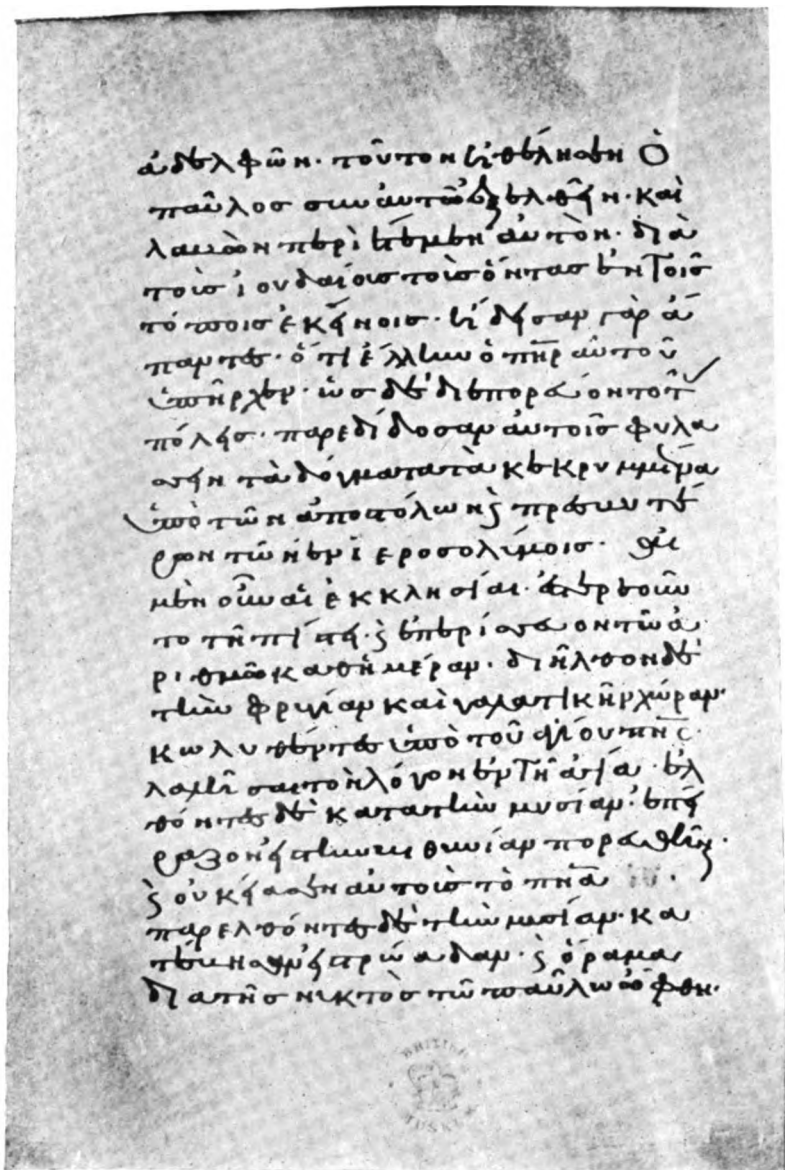 ἀδελφῶν· τοῦτον ἠθέλησεν ὁ
παῦλος σὺν αὐτῶ ἐξελθεῖν· καὶ
λαβὼν περιέτεμεν αὐτὸν· διὰ
τοὺς ἰουδαίους τοὺς ὄντας ἐν τοῖς
τόποις ἐκείνοις· ἤδησαν γὰρ ἅ
παντες· ὅτι ἕλλην ὁ π̅η̅ρ̅ αὐτοῦ
ὑπῆρχεν· ὡς δὲ διεπορεύοντο τ
πόλεις· παρεδίδοσαν αὐτοῖς φυλα
σσειν τὰ δόγματα τὰ κεκρυμμένα
ὑπὸ τῶν ἀποστόλων ϗ πρεσβυτέ
ρων τῶν ἐν ἱεροσολύμοις· αἱ
μὲν οὖν αἱ ἐκκλησίαι· ἐστερεοῦν
το τῆ πίστει· ϗ ἐπερίσσευον τῶ ἀ
ριθμῶ καθημέραν· διῆλθον δὲ
τὴν φρυγίαν καὶ γαλατικὴν χώραν·
κωλυθέντες ὑπὸ τοῦ ἁγίου π̅ν̅ς̅·
λαλῆσαι τὸν λόγον ἐν τῆ ἀσία· ἐλ
θόντες δὲ κατὰ τὴν μυσίαν· ἐπεί
ραζον εἰς τὴν βιθυνίαν πορευθῆναι·
ϗ οὐκ εἴασεν αὐτοὺς τὸ π̅ν̅α̅
παρελθόντες δὲ τὴν μυσίαν· κα
τέβησαν εἰς τρωάδαν· ϗ ὅραμα
διὰ τῆς νυκτὸς τῶ παύλω ὤφθη·
BRITISH
MUSEUM